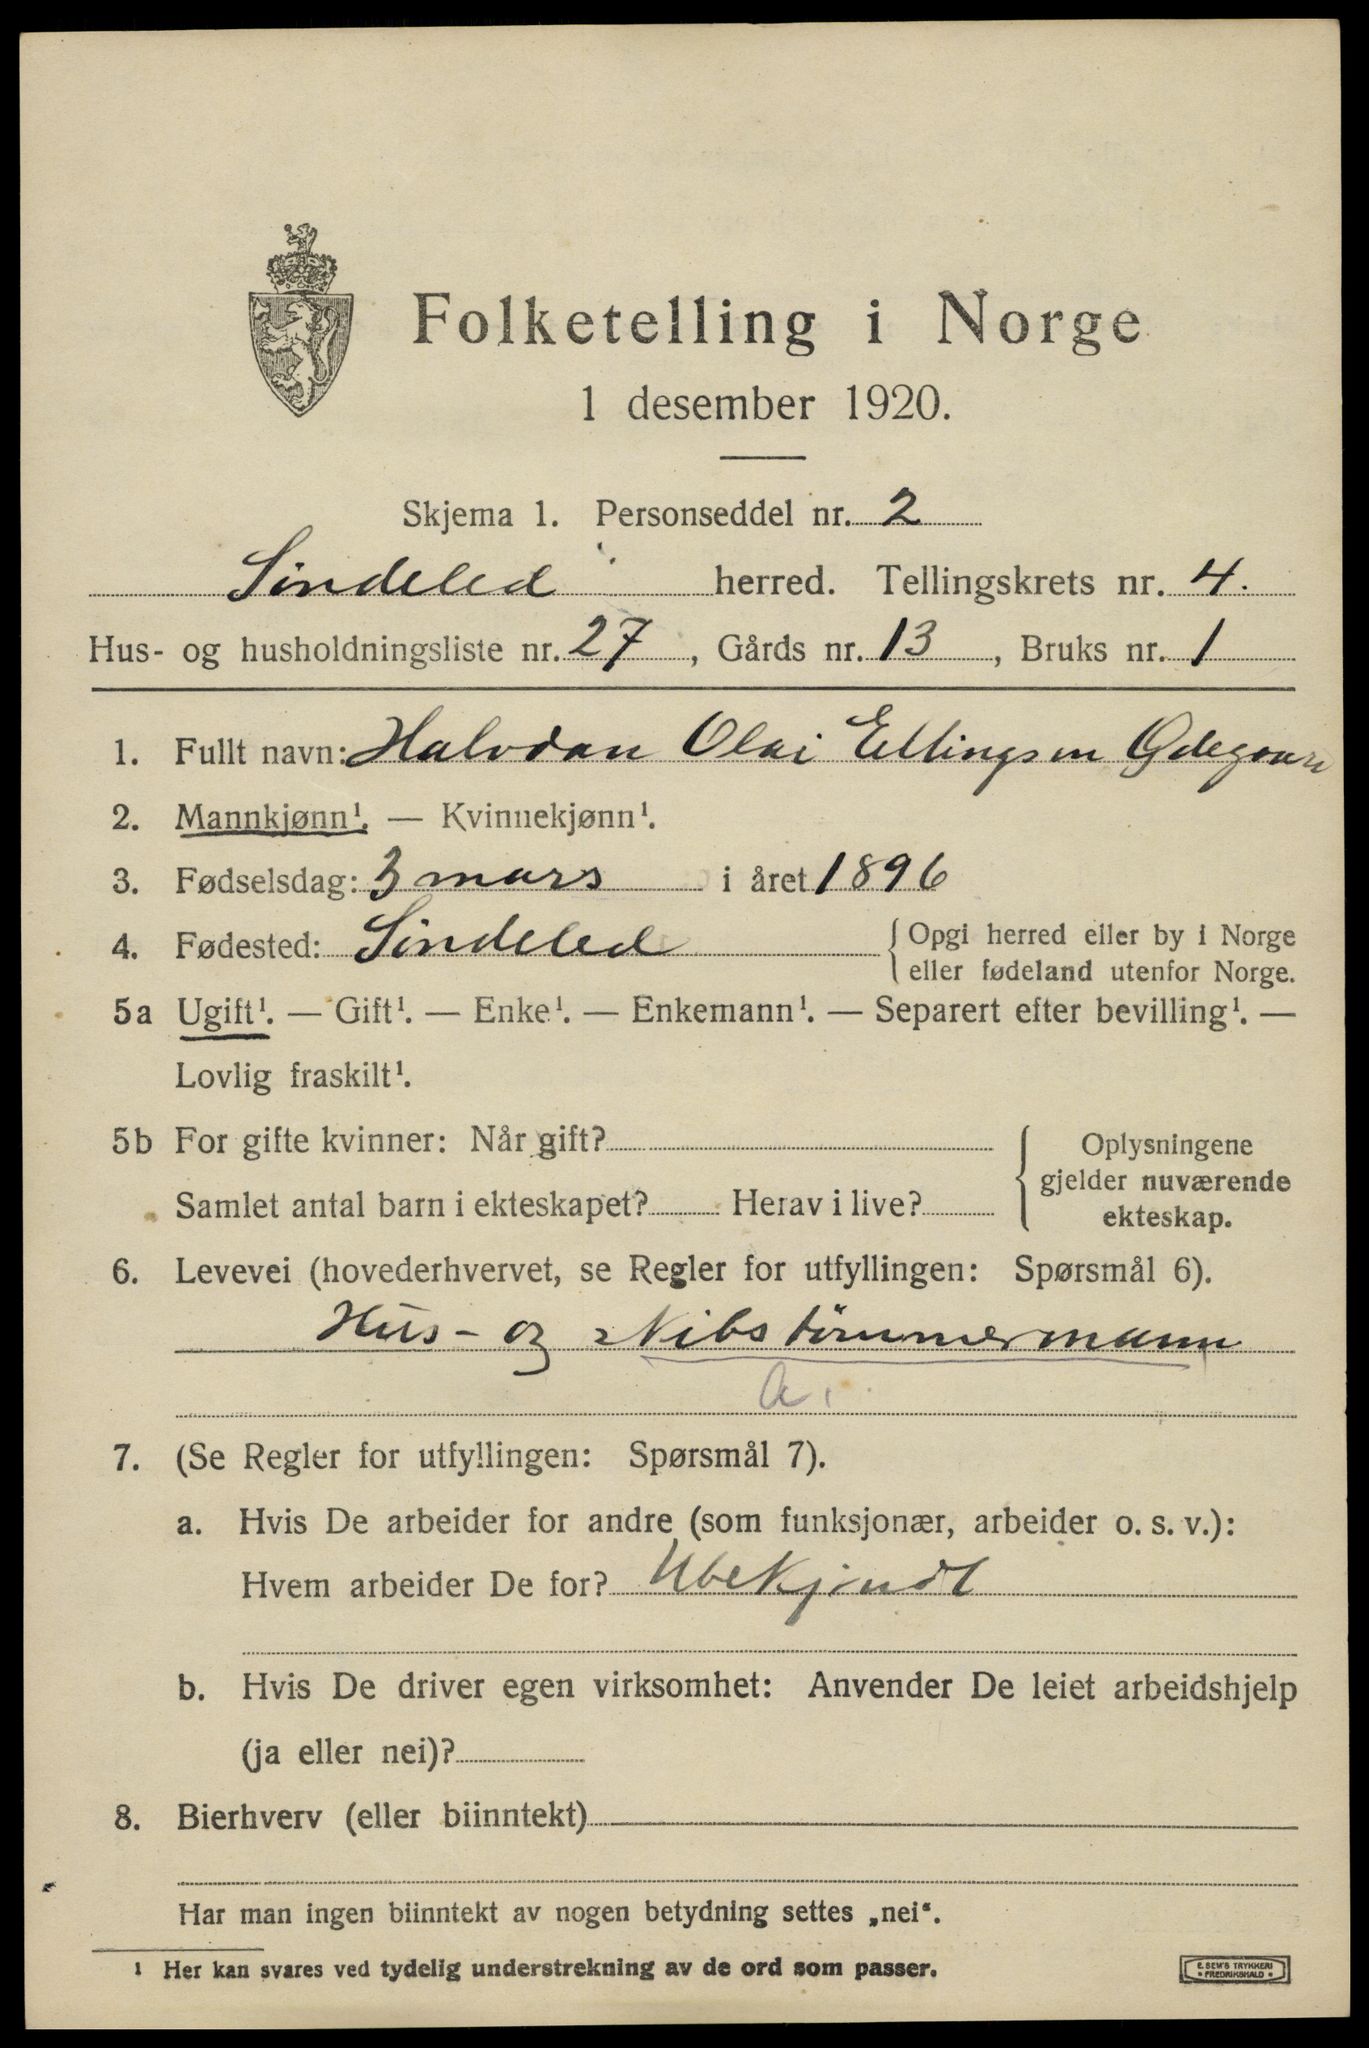 Folketelling i Norge
1 desember 1920.
Skjema 1. Personseddel nr. 2
Søndeled herred. Tellingskrets nr. 4.
Hus- og husholdningsliste nr. 27, Gårds nr. 13, Bruks nr. 1
1. Fullt navn: Halvdan Olai Ellingsen Ødegaard
2. Mannkjønn¹. — Kvinnekjønn¹.
3. Fødselsdag: 3 mars i året 1896
4. Fødested: Søndeled { Opgi herred eller by i Norge
eller fødeland utenfor Norge.
5a Ugift¹. — Gift¹. — Enke¹. — Enkemann¹. — Separert efter bevilling¹. —
Lovlig fraskilt¹.
5b For gifte kvinner: Når gift? { Oplysningene
gjelder nuværende
Samlet antal barn i ekteskapet? Herav i live?
ekteskap.
6. Levevei (hovederhvervet, se Regler for utfyllingen: Spørsmål 6).
Hus- og Skibstømmermann
a.
7. (Se Regler for utfyllingen: Spørsmål 7).
a. Hvis De arbeider for andre (som funksjonær, arbeider o. s. v.):
Hvem arbeider De for? Ubekjendt
b. Hvis De driver egen virksomhet: Anvender De leiet arbeidshjelp
(ja eller nei)?
8. Bierhverv (eller biinntekt)
Har man ingen biinntekt av nogen betydning settes „nei“.
¹ Her kan svares ved tydelig understrekning av de ord som passer.
E. SEM'S TRYKKERI
• FREDRIKSHALD •